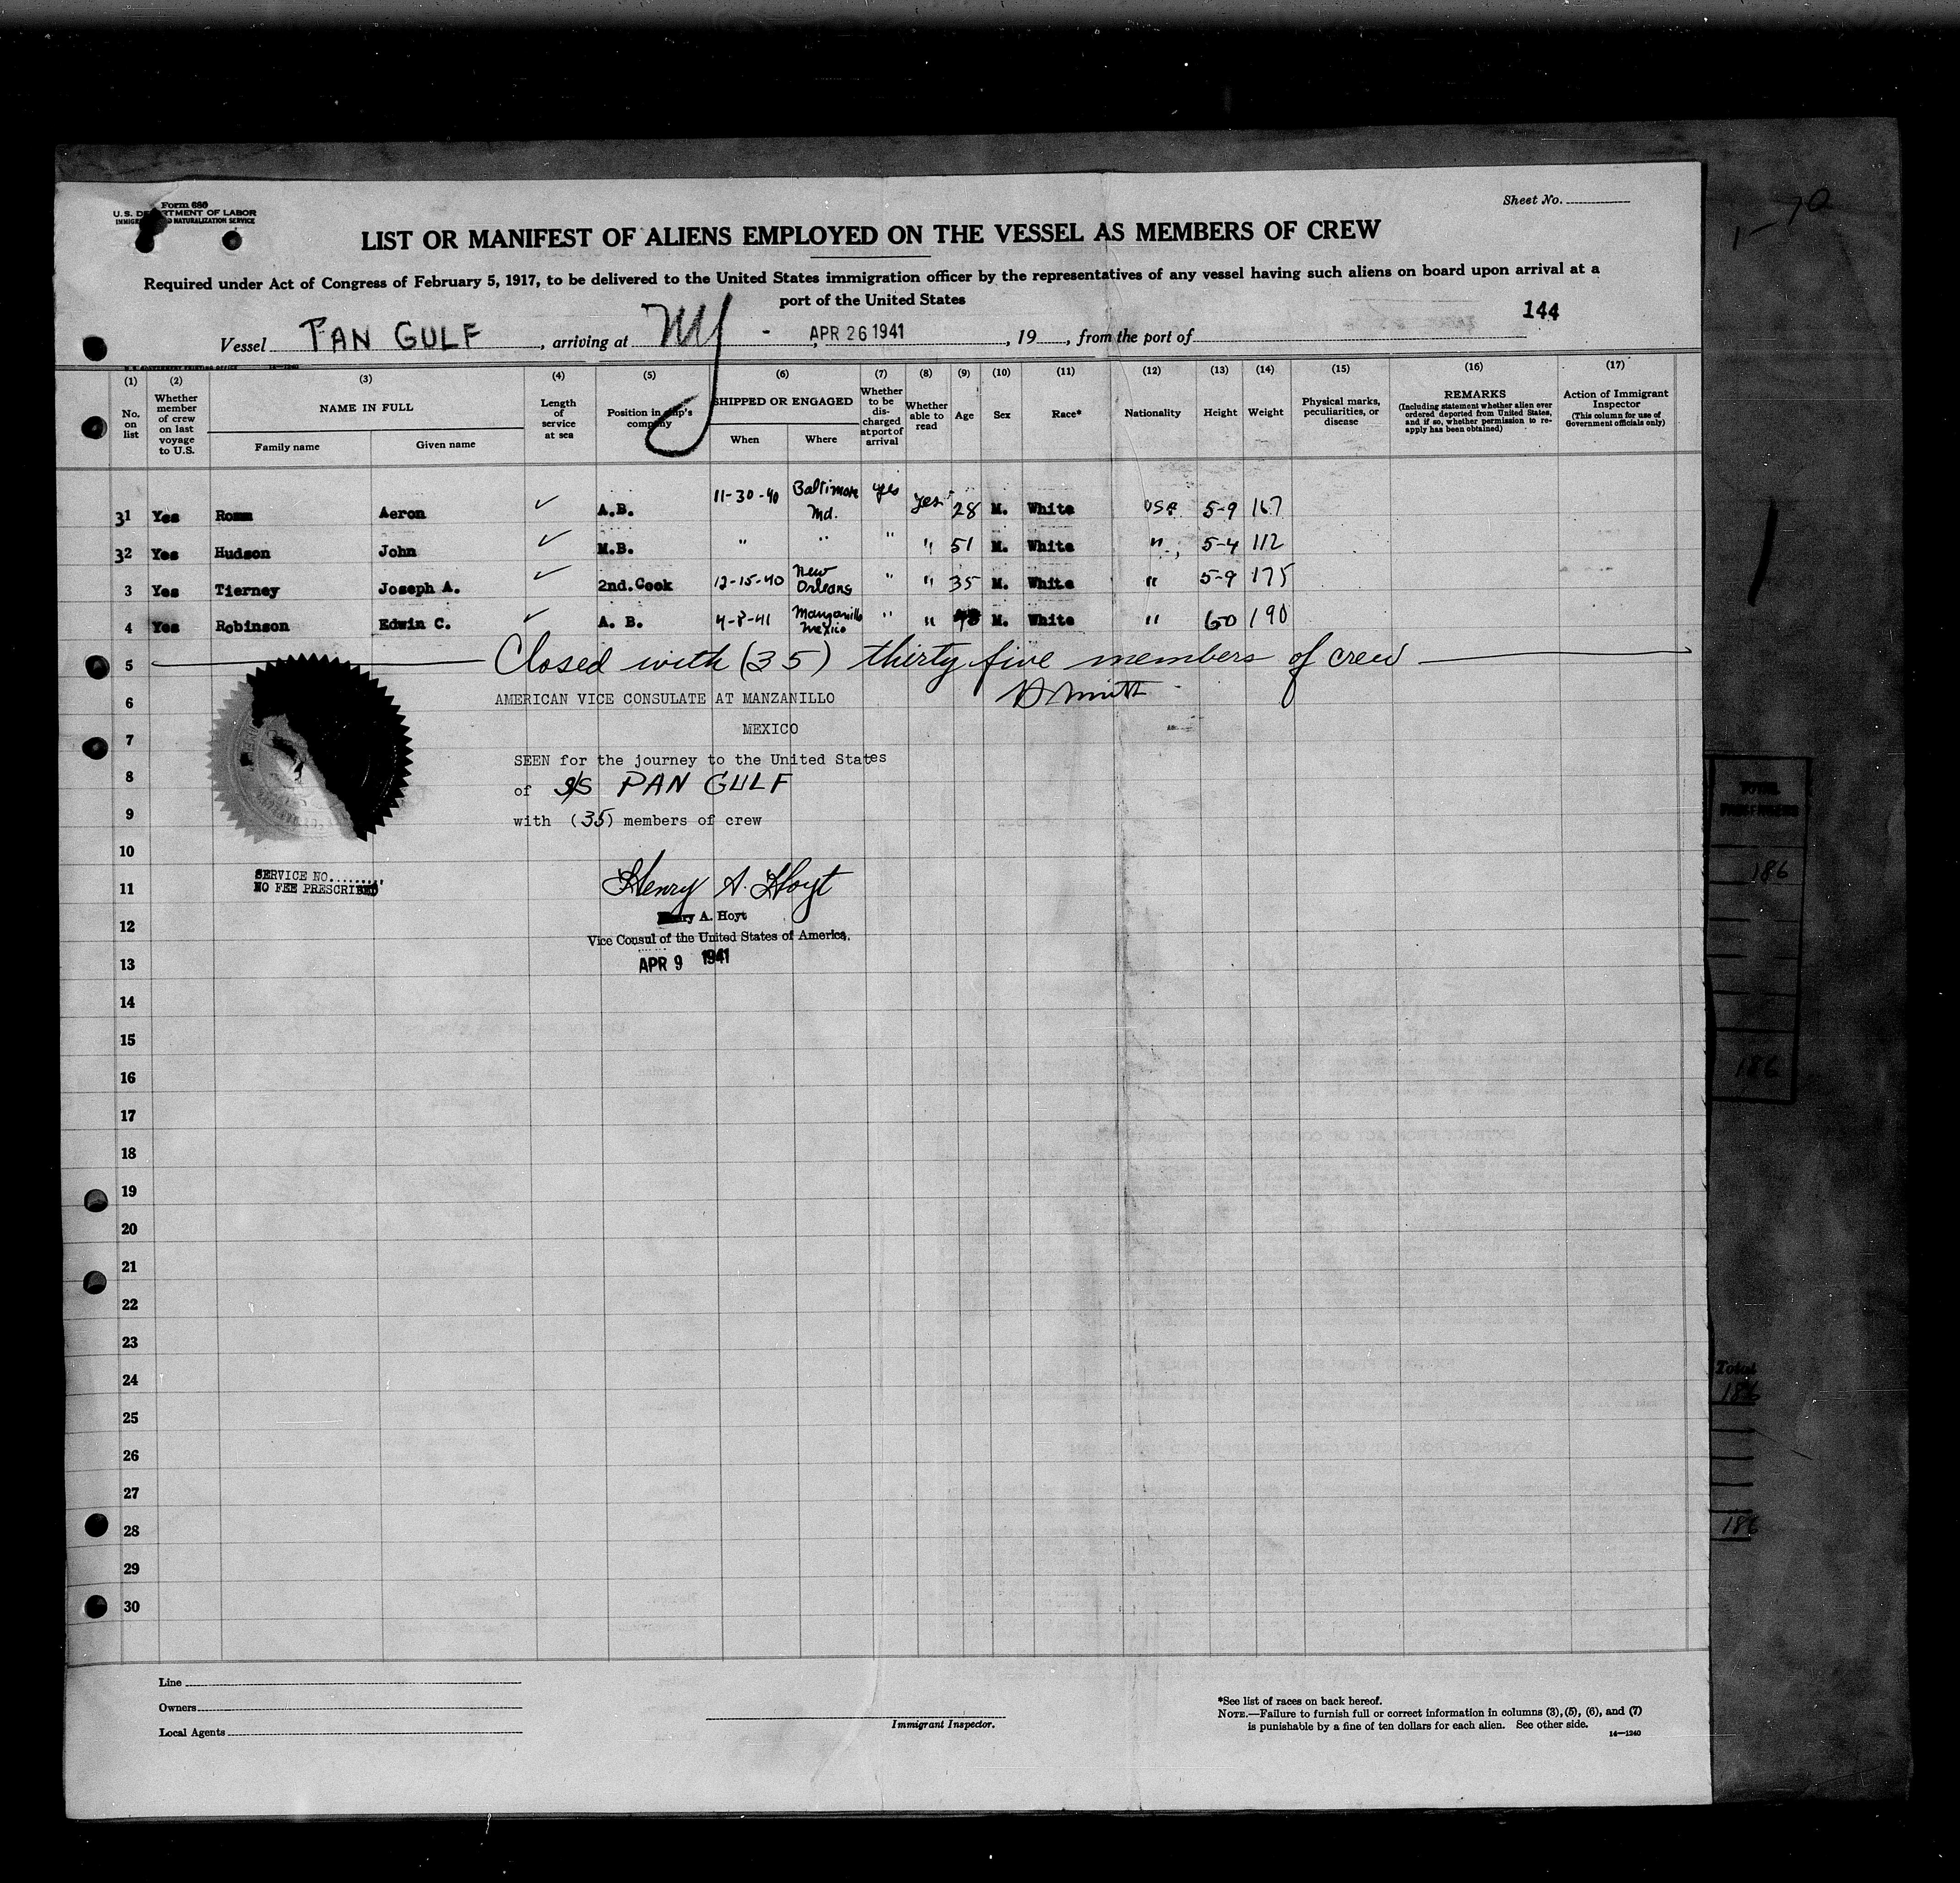 Form 680
U.S. DEPARTMENT OF LABOR
IMMIGRATION AND NATURALIZATION SERVICE
Sheet No.
LIST OR MANIFEST OF ALIENS EMPLOYED ON THE VESSEL AS MEMBERS OF CREW
Required under Act of Congress of February 5, 1917, to be delivered to the United States immigration officer by the representatives of any vessel having such aliens on board upon arrival at a
port of the United States
144
Vessel PAN GULF, arriving at NY - APR 26 1941, 19, from the port of
(1) (2) (3) (4) (5) (6) (7) (8) (9) (10) (11) (12) (13) (14) (15) (16) (17)
No. on list
Whether member of crew on last voyage to U.S.
NAME IN FULL
Family name
Given name
Length of service at sea
Position in ship's company
SHIPPED OR ENGAGED
When
Where
Whether to be discharged at port of arrival
Whether able to read
Age
Sex
Race*
Nationality
Height
Weight
Physical marks, peculiarities, or disease
REMARKS
(Including statement whether alien ever ordered deported from United States, and if so, whether permission to reapply has been obtained)
Action of Immigrant Inspector
(This column for use of Government officials only)
31 Yes Romm Aeron ✓ A.B. 11-30-40 Baltimore Md. yes yes 28 M. White USA 5-9 167
32 Yes Hudson John ✓ M.B. " " " " 51 M. White " 5-4 112
3 Yes Tierney Joseph A. ✓ 2nd. Cook 12-15-40 New Orleans " " 35 M. White " 5-9 175
4 Yes Robinson Edwin C. ✓ A. B. 4-8-41 Manzanillo Mexico " " M. White " 60 190
5 Closed with (35) thirty five members of crew
6 AMERICAN VICE CONSULATE AT MANZANILLO
7 MEXICO
SEEN for the journey to the United States
8 of S/S PAN GULF
9 with (35) members of crew
10
SERVICE NO.
11 NO FEE PRESCRIBED Henry A. Hoyt
12 Henry A. Hoyt
Vice Consul of the United States of America.
13 APR 9 1941
14
15
16
17
18
19
20
21
22
23
24
25
26
27
28
29
30
Line
Owners
Local Agents
Immigrant Inspector.
*See list of races on back hereof.
NOTE.—Failure to furnish full or correct information in columns (3), (5), (6), and (7)
is punishable by a fine of ten dollars for each alien. See other side.
14—1240
TOTAL
PASSENGERS
186
186
Total
186
186